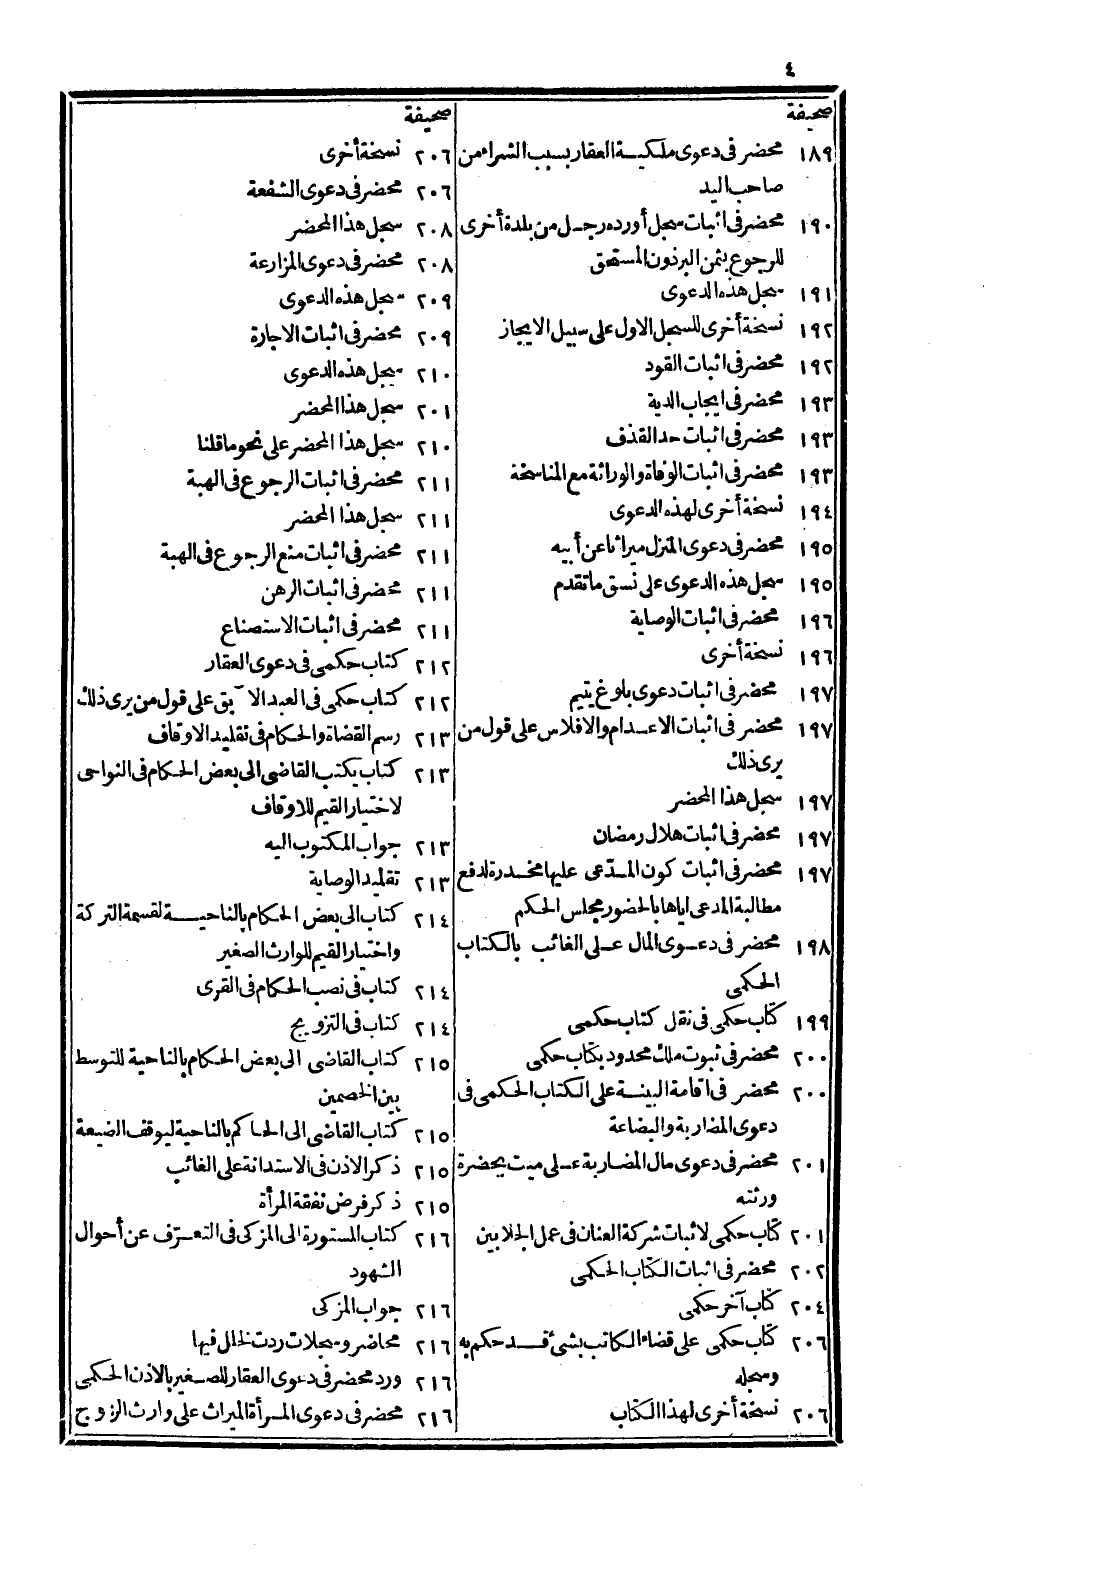 ٤
صحيفة
١٨٩ محضر فى دعوى ملكية العقار بسبب الشراء من
صاحب اليد
١٩٠ محضر فى اثبات سجل أورده رجل من بلدة أخرى
للرجوع بثمن البرذون المستحق
١٩١ سجل هذه الدعوى
١٩٢ نسخة أخرى للسجل الاول على سبيل الايجاز
١٩٢ محضر فى اثبات القود
١٩٣ محضر فى ايجاب الدية
١٩٣ محضر فى اثبات حد القذف
١٩٣ محضر فى اثبات الوفاة والوراثة مع المناسخة
١٩٤ نسخة أخرى لهذه الدعوى
١٩٥ محضر فى دعوى المنزل ميراثا عن أبيه
١٩٥ سجل هذه الدعوى على نسق ما تقدم
١٩٦ محضر فى اثبات الوصاية
١٩٦ نسخة أخرى
١٩٧ محضر فى اثبات دعوى بلوغ يتيم
١٩٧ محضر فى اثبات الاعدام والافلاس على قول من
يرى ذلك
١٩٧ سجل هذا المحضر
١٩٧ محضر فى اثبات هلال رمضان
١٩٧ محضر فى اثبات كون المدّعى عليها مخدرة لدفع
مطالبة المدعى اياها بالحضور مجلس الحكم
١٩٨ محضر فى دعوى المال على الغائب بالكتاب
الحكمى
١٩٩ كتاب حكمى فى نقل كتاب حكمى
٢٠٠ محضر فى ثبوت ملك محدود بكتاب حكمى
٢٠٠ محضر فى اقامة البينة على الكتاب الحكمى فى
دعوى المضاربة والبضاعة
٢٠١ محضر فى دعوى مال المضاربة على ميت بحضرة
ورثته
٢٠١ كتاب حكمى لاثبات شركة العنان فى عمل الجلابين
٢٠٢ محضر فى اثبات الكتاب الحكمى
٢٠٤ كتاب آخر حكمى
٢٠٦ كتاب حكمى على قضاء الكاتب بشئ قد حكم به
وسجله
٢٠٦ نسخة أخرى لهذا الكتاب
صحيفة
٢٠٦ نسخة أخرى
٢٠٦ محضر فى دعوى الشفعة
٢٠٨ سجل هذا المحضر
٢٠٨ محضر فى دعوى المزارعة
٢٠٩ سجل هذه الدعوى
٢٠٩ محضر فى اثبات الاجارة
٢١٠ سجل هذه الدعوى
٢٠١ سجل هذا المحضر
٢١٠ سجل هذا المحضر على نحو ما قلنا
٢١١ محضر فى اثبات الرجوع فى الهبة
٢١١ سجل هذا المحضر
٢١١ محضر فى اثبات منع الرجوع فى الهبة
٢١١ محضر فى اثبات الرهن
٢١١ محضر فى اثبات الاستصناع
٢١٢ كتاب حكمى فى دعوى العقار
٢١٢ كتاب حكمى فى العبد الآبق على قول من يرى ذلك
٢١٣ رسم القضاة والحكام فى تقليد الاوقاف
٢١٣ كتاب يكتب القاضى الى بعض الحكام فى النواحى
لاختيار القيم للاوقاف
٢١٣ جواب المكتوب اليه
٢١٣ تقليد الوصاية
٢١٤ كتاب الى بعض الحكام بالناحية لقسمة التركة
واختيار القيم للوارث الصغير
٢١٤ كتاب فى نصب الحكام فى القرى
٢١٤ كتاب فى التزويج
٢١٥ كتاب القاضى الى بعض الحكام بالناحية للتوسط
بين الخصمين
٢١٥ كتاب القاضى الى الحاكم بالناحية ليوقف الضيعة
٢١٥ ذكر الاذن فى الاستدانة على الغائب
٢١٥ ذكر فرض نفقة المرأة
٢١٦ كتاب المستورة الى المزكى فى التعرّف عن أحوال
الشهود
٢١٦ جواب المزكى
٢١٦ محاضر وسجلات ردت لخلل فيها
٢١٦ ورد محضر فى دعوى العقار للصغير بالاذن الحكمى
٢١٦ محضر فى دعوى المرأة الميراث على وارث الزوج